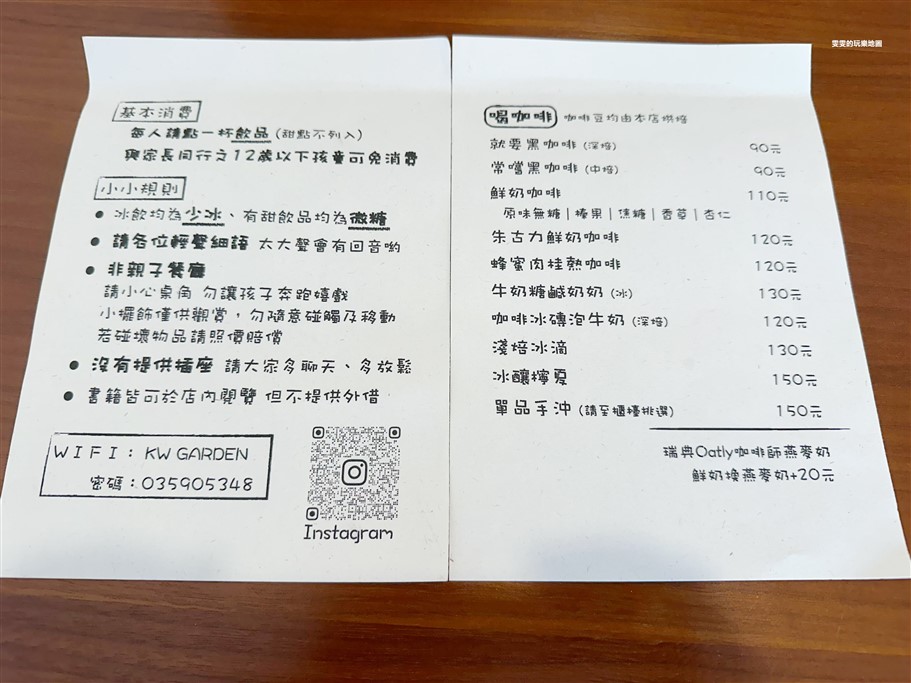 雯雯的玩樂地圖
基本消費
每人請點一杯飲品 (甜點不列入)
與家長同行之12歲以下孩童可免消費
小小規則
● 冰飲均為少冰、有甜飲品均為微糖
● 請各位輕聲細語 太大聲會有回音喲
● 非親子餐廳
請小心桌角 勿讓孩子奔跑嬉戲
小擺飾僅供觀賞，勿隨意碰觸及移動
若碰壞物品請照價賠償
● 沒有提供插座 請大家多聊天、多放鬆
● 書籍皆可於店內閱覽 但不提供外借
WIFI：KW GARDEN
密碼：035905348
Instagram
喝咖啡 咖啡豆均由本店烘焙
就要黑咖啡 (深焙) 90元
常嚐黑咖啡 (中焙) 90元
鮮奶咖啡 110元
原味無糖｜榛果｜焦糖｜香草｜杏仁
朱古力鮮奶咖啡 120元
蜂蜜肉桂熱咖啡 120元
牛奶糖鹹奶奶 (冰) 130元
咖啡冰磚泡牛奶 (深焙) 120元
淺焙冰滴 130元
冰釀檸夏 150元
單品手沖 (請至櫃檯挑選) 150元
瑞典Oatly咖啡師燕麥奶
鮮奶換燕麥奶+20元